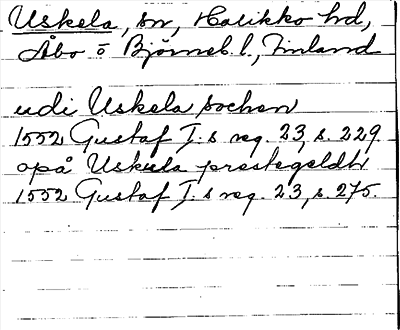 Uskela, sn, Halikko hd,
Åbo o Björneb. l., Finland
udi Uskela sochen
1552 Gustaf I:s reg. 23, s. 229.
opå Uskula prestegeldt
1552 Gustaf I:s reg. 23, s. 275.